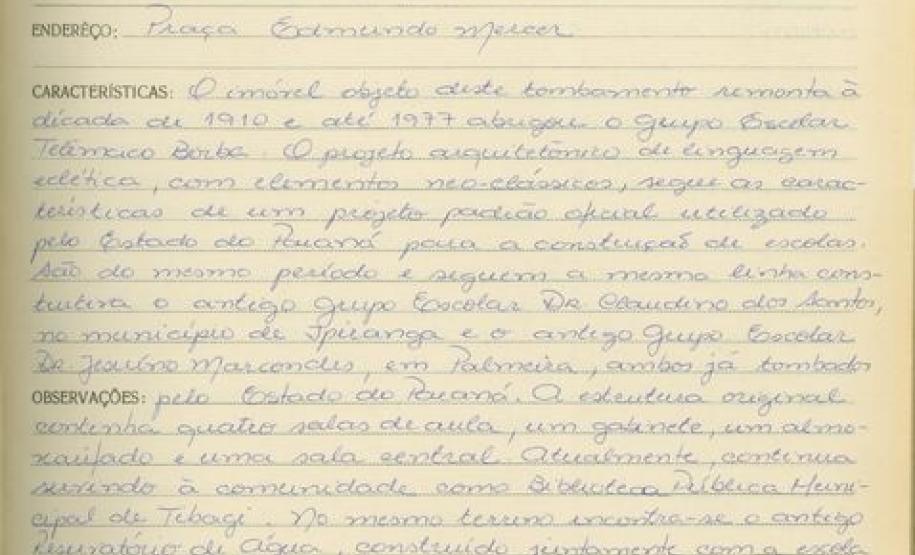 ENDERÊÇO: Praça Edmundo Mercer
CARACTERÍSTICAS: O imóvel objeto deste tombamento remonta à
década de 1910 e até 1977 abrigou o Grupo Escolar
Telêmaco Borba. O projeto arquitetônico de linguagem
eclética, com elementos neo-clássicos, segue as carac-
terísticas de um projeto padrão oficial utilizado
pelo Estado do Paraná para a construção de escolas.
São do mesmo período e seguem a mesma linha cons-
trutiva o antigo Grupo Escolar Dr. Claudino dos Santos,
no município de Ipiranga e o antigo Grupo Escolar
Dr. Jesuíno Marcondes, em Palmeira, ambos já tombados
OBSERVAÇÕES: pelo Estado do Paraná. A estrutura original
continha quatro salas de aula, um gabinete, um almo-
xarifado e uma sala central. Atualmente, continua
servindo à comunidade como Biblioteca Pública Muni-
cipal de Tibagi. No mesmo terreno encontra-se o antigo
Reservatório de Água, construído juntamente com a escola